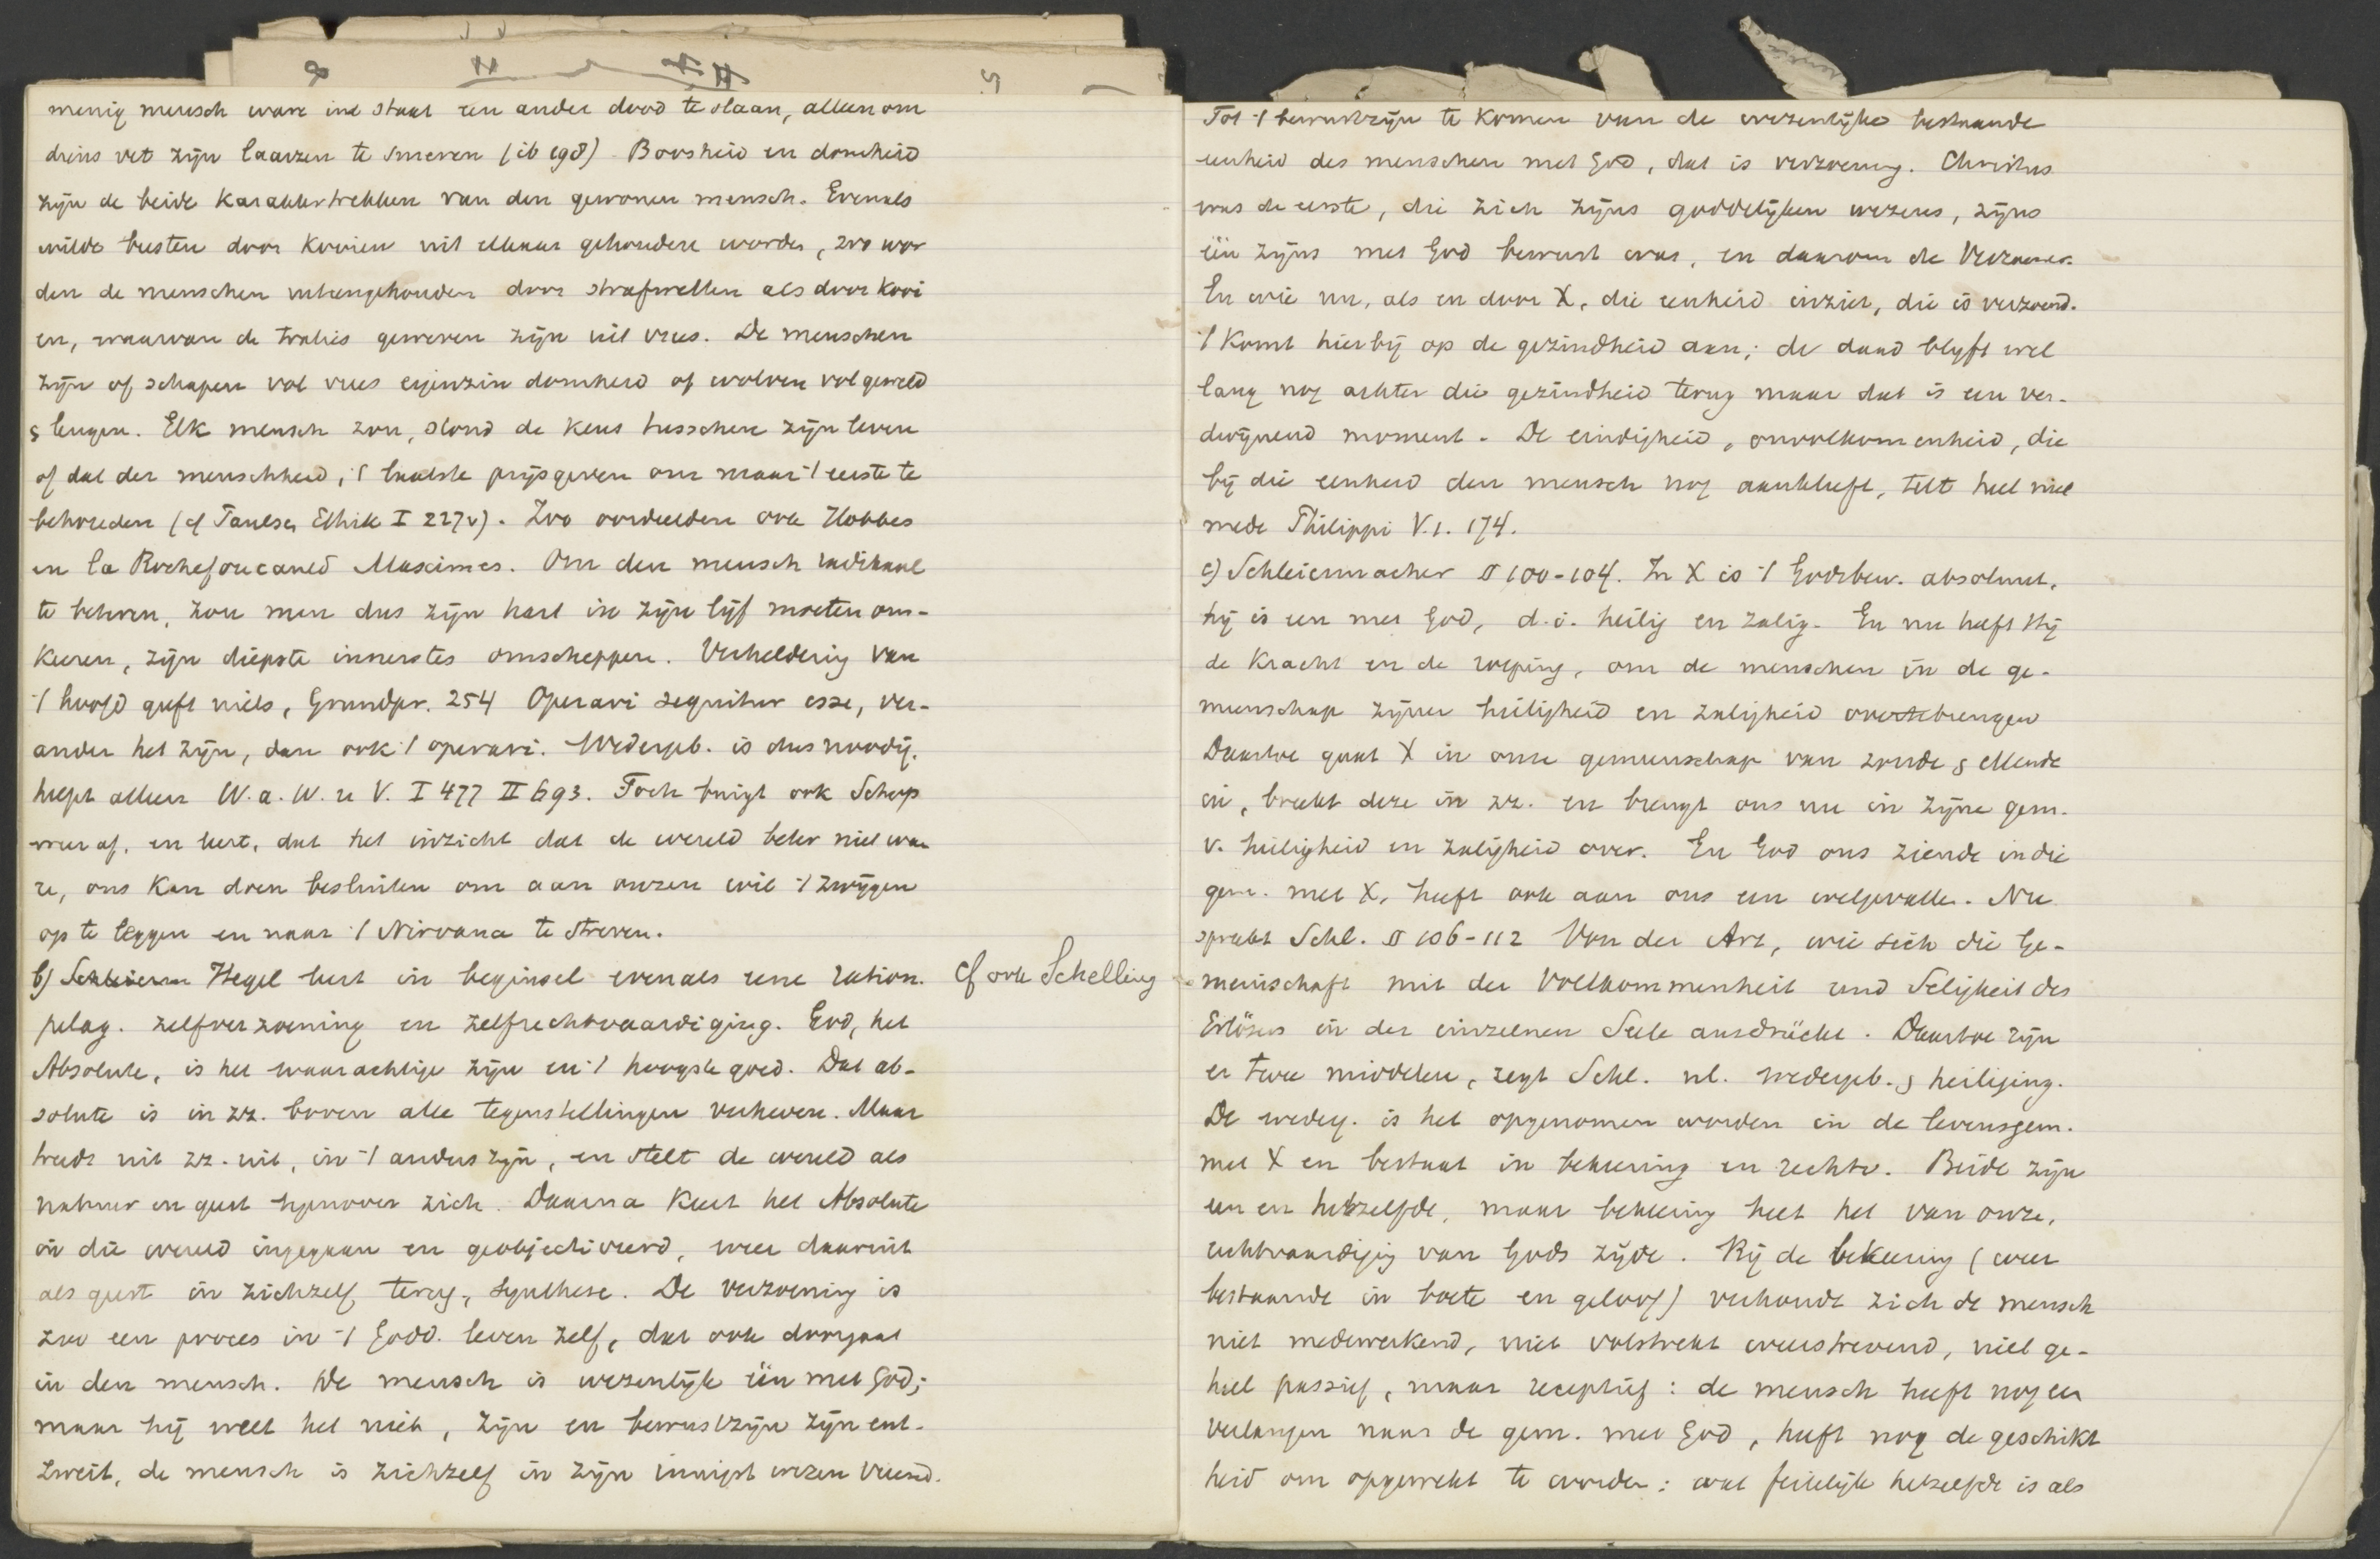 menig mensch ware in staat een ander dood te slaan, alleen om
diens vet zijn laarzen te smeren (ib 198) Boosheid en domheid
zijn de beide karaktertrekken van den gewonen mensch. Evenals
wilde beesten door kooien uit elkaar gehouden worden, zoo wor
den de menschen uiteengehouden door strafwetten als door kooi
en, waarvan de tralies geweven zijn uit vrees. De menschen
zijn of schapen vol vrees eigenzin domheid of wolven vol geweld
& leugen. Elk mensch zou, stond de keus tusschen zijn leven
of dat der menschheid, 't laatste prijsgeven om maar 't eerste te
behouden (cf Paulsen Ethik I 227v). Zoo oordeelden ook Hobbes
en la Rochefoucauld Maximes. Om den mensch radikaal
te bekeeren, zou men dus zijn hart in zijn lijf moeten om-
keeren, zijn diepste innerstes omscheppen. Verheldering van
't hoofd geeft niets, Grundpr. 254 Operari sequitur esse, ver-
ander het zijn, dan ook 't operari. Wedergeb. is dus noodig.
helpt alleen W. a. W. u V. I 477 II 693. Toch buigt ook Schop
weer af, en leert, dat het inzicht dat de wereld beter niet wa
re, ons kan doen besluiten om aan onzen wil 't zwijgen
op te leggen en naar 't Nirvana te streven.
b) Schleierm Hegel leert in beginsel evenals een ration. cf ook Schelling
pelag. zelfverzoening en zelfrechtvaardiging. God, het
Absolute, is het waarachtige zijn en 't hoogste goed. Dat ab-
solute is in zz. boven alle tegenstellingen verheven. Maar
treedt uit zz. uit, in 't anders zijn, en stelt de wereld als
natuur en geest tegenover zich. Daarna keert het Absolute
in die wereld ingegaan en geobjectiveerd, weer daaruit
als geest in zichzelf terug, synthese. De verzoening is
zoo een proces in 't Godd. leven zelf, dat ook doorgaat
in den mensch. De mensch is wezenlijk één met God;
maar hij weet het niet, zijn en bewustzijn zijn ent-
zweit, de mensch is zichzelf in zijn innigst wezen vreemd.
Tot 't bewustzijn te komen van de wezenlijke bestaande
eenheid des menschen met God, dat is verzoening. Christus
was de eerste, die zich zijns goddelijken wezens, zijns
één zijns met God bewust was, en daarom de Verzoener.
En wie nu, als en door X, die eenheid inziet, die is verzoend.
't Komt hierbij op de gezindheid aan; de daad blijft wel
lang nog achter die gezindheid terug maar dat is een ver-
dwijnend moment. De eindigheid, onvolkomenheid, die
bij die eenheid den mensch nog aankleeft, telt heel niet
mede Philippi V.1. 174.
c) Schleiermacher § 100-104. In X is 't Godsbew. absoluut,
hij is een met God, d.i. heilig en zalig. En nu heeft Hij
de kracht en de roeping, om de menschen in de ge-
meenschap zijner heiligheid en zaligheid overtebrengen
Daartoe gaat X in onze gemeenschap van zonde & ellende
in, breekt deze in zz. en brengt ons nu in zijne gem.
v. heiligheid en zaligheid over. En God ons ziende in die
gem. met X, heeft ook aan ons een welgevallen. Nu
spreekt Schl. § 106-112 Von der Art, wie sich die Ge-
meinschaft mit der Vollkommenheit und Seligkeit des
Erlösers in der einzelnen Seele ausdrückt. Daartoe zijn
er twee middelen, zegt Schl. nl. wedergeb. & heiliging.
De wederg. is het opgenomen worden in de levensgem.
met X en bestaat in bekeering en rechtv. Beide zijn
een en hetzelfde, maar bekeering heet het van onze,
rechtvaardiging van Gods zijde. Bij de bekeering (weer
bestaande in boete en geloof) verhoudt zich de mensch
niet medewerkend, niet volstrekt weerstrevend, niet ge-
heel passief, maar receptief: de mensch heeft nog een
verlangen naar de gem. met God, heeft nog de geschikt
heid om opgewekt te worden: wat feitelijk hetzelfde is als